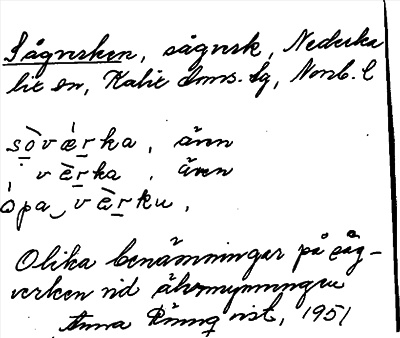 Sågverken, sågverk, Nederka
lix sn, Kalix doms. sg, Norrb. l
sòvǽrka, även
vὲrka, även
ópa vὲrku,
Olika benämningar på såg-
verken vid älvmynningen
Anna Rönnqvist, 1951